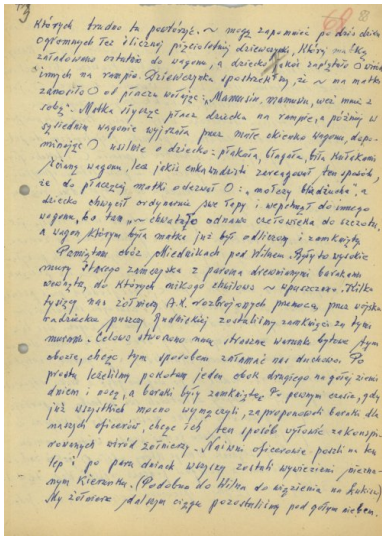 których trudno tu powtórzyć. ~ mogę zapomnieć po dziś dzień
ogromnych łez ślicznej pięcioletniej dziewczynki, której matkę
załadowano ostatnio do wagonu, a dziecko jakoś zaplątało
innymi na rampie. Dziewczynka spostrzegł, że ~ ma matki
zanosiło od płaczu wołając: „Mamusiu, mamusiu, weź mnie z
sobą". Matka słysząc płacz dziecka na rampie, a później w
sąsiednim wagonie wyjrzała przez małe okienko wagonu, dopo-
minając usilnie o dziecko: płakała, błagała, biła kułakami
ściany wagonu, lecz jakiś enkawudzista zareagował ten sposób,
że do płaczącej matki odezwał: „mołczy bladziucha", a
dziecko chwycił ordynarnie swe łapy i wepchnął do innego
wagonu, bo tam ~ chwatało odnawa człowieka do szczotu,
a wagon którym była matka już był odliczony i zamknięty
Pamiętam obóz Miednikach pod Wilnem. Były to wysokie
mury starego zamczyska z paroma drewnianymi barakami
wewnątrz, do których nikogo chwilowo ~ wpuszczano. Kilka
tysięcy nas żołnierzy A.K. rozbrojonych przemocą przez wojska
radzieckie puszczy Rudnickiej zostaliśmy zamknięci za tymi
murami. Celowo stworzono nam straszne warunki bytowe tym
obozie, chcąc tym sposobem załamać nas duchowo. Po
prostu leżeliśmy pokotem jeden obok drugiego na gołej ziemi
dniem i nocą, a baraki były zamknięte. Po pewnym czasie, gdy
już wszystkich mocno wymęczyli, zaproponowali baraki dla
naszych oficerów, chcąc ich ten sposób wyłowić zakonspi-
rowanych wśród żołnierzy. Naiwni oficerowie poszli na ten
lep i po paru dniach wszyscy zostali wywiezieni niezna-
nym kierunku. (Podobno do Wilna do więzienia na Łukiszki)
My żołnierze dalszym ciągu pozostaliśmy pod gołym niebem.